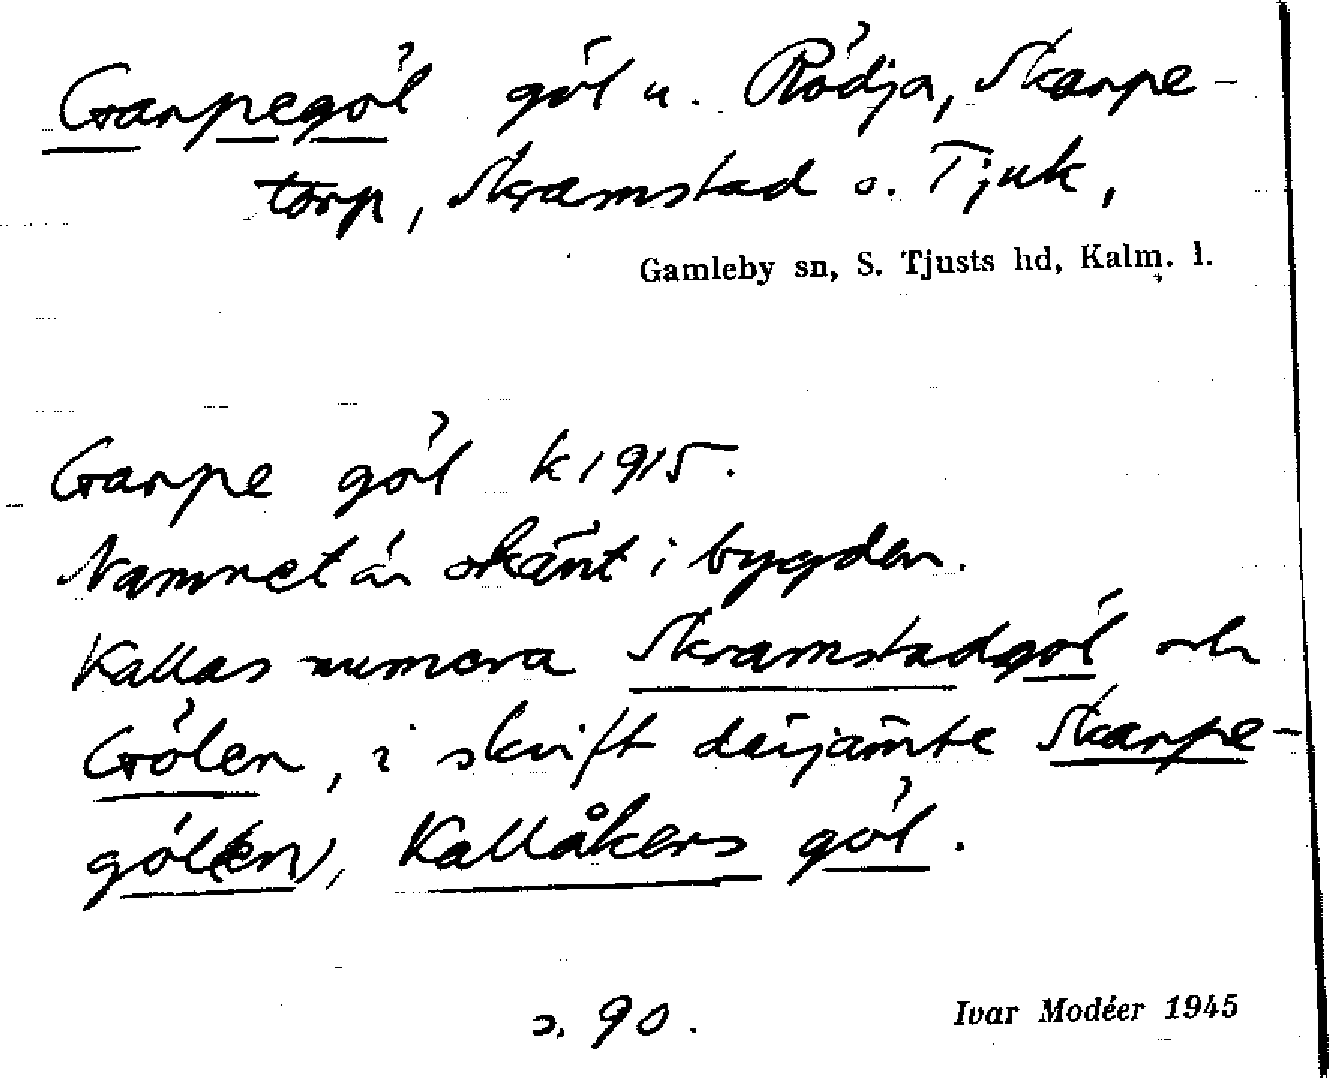 Garpegöl göl u. Rödja, Skarpe-
torp, Skramstad o. Tjuk,
Gamleby sn, S. Tjusts hd, Kalm. l.
Garpe göl k 1915.
Namnet är okänt i bygden.
Kallas numera Skramstadgöl och
Gölen, i skrift därjämte Skarpe-
göl(en), Kallåkers göl.
s. 90.
Ivar Modéer 1945